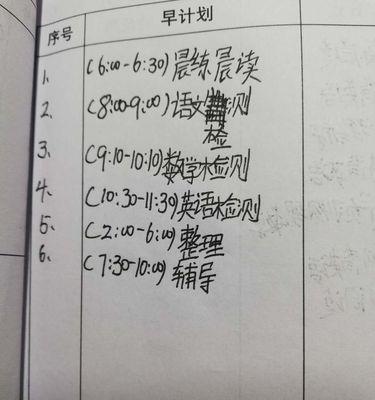 序号 早计划
1、(6:00-6:30) 晨练晨读
2、(8:00-9:00) 语文测
检
3、(9:10-10:10) 数学检测
4、(10:30-11:30) 英语检测
5、(2:00-6:00) 整理
6、(7:30-10:00) 辅导